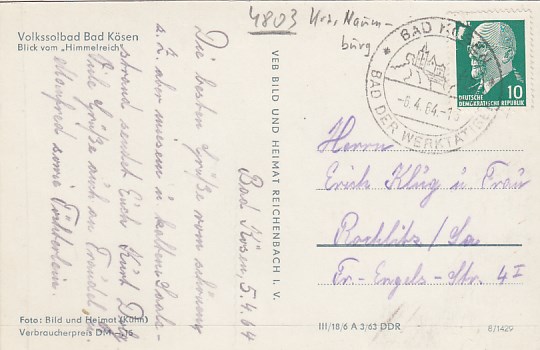 Volkssolbad Bad Kösen
Blick vom „Himmelreich"
4803 Krs. Naum-
burg
BAD KÖSEN
-6.4.64.-
BAD DER WERKTÄTIGEN
DEUTSCHE
DEMOKRATISCHE REPUBLIK
10
Bad Kösen, 5.4.64
Die besten Grüße vom schönen
z. Z. aber nassen u. kalten Saale-
strand sendet Euch Kurt
Viele Grüße auch an Traudel u.
Manfred sowie Töchterlein.
VEB BILD UND HEIMAT REICHENBACH I. V.
Herrn
Erich Klug u. Frau
Rochlitz/Sa.
Fr.-Engels-Str. 4 I
Foto: Bild und Heimat (Kühn)
Verbraucherpreis DM -,15
III/18/6 A 3/63 DDR
8/1429